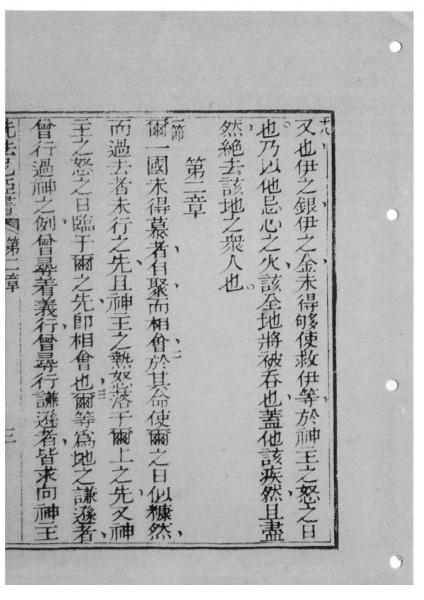 十八又也伊之銀伊之金未得够使救伊等於神王之怒之日
也乃以他忌心之火該全地將被吞也蓋他該疾然且盡
然絕去該地之衆人也
第二章
一節爾一國未得慕者自聚而相會於其命使爾之日似糠然
而過去者未行之先且神王之熱怒落于爾上之先又神
王之怒之日臨于爾之先即相會也三爾等為地之謙遜者
曾行過神之例曾尋着義行曾尋行謙遜者皆求向神王
書 第二章 三